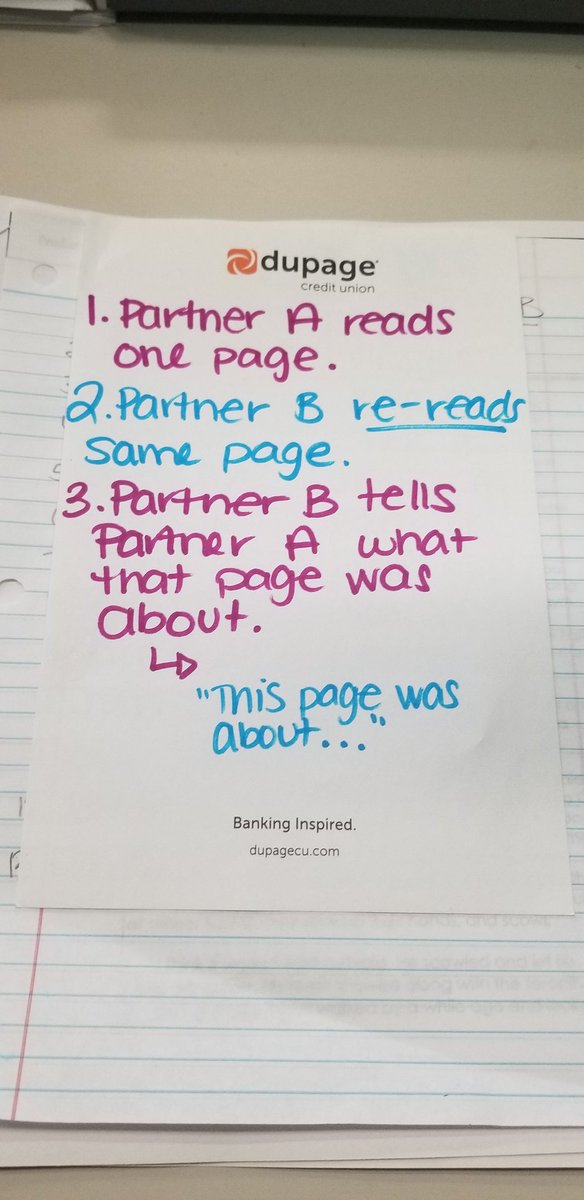 dupage
credit union
1. Partner A reads
one page.
2. Partner B re-reads
same page.
3. Partner B tells
Partner A what
that page was
about.
"This page was
about..."
Banking Inspired.
dupagecu.com